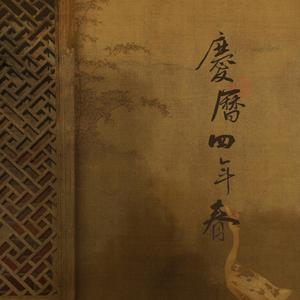 慶曆四年春